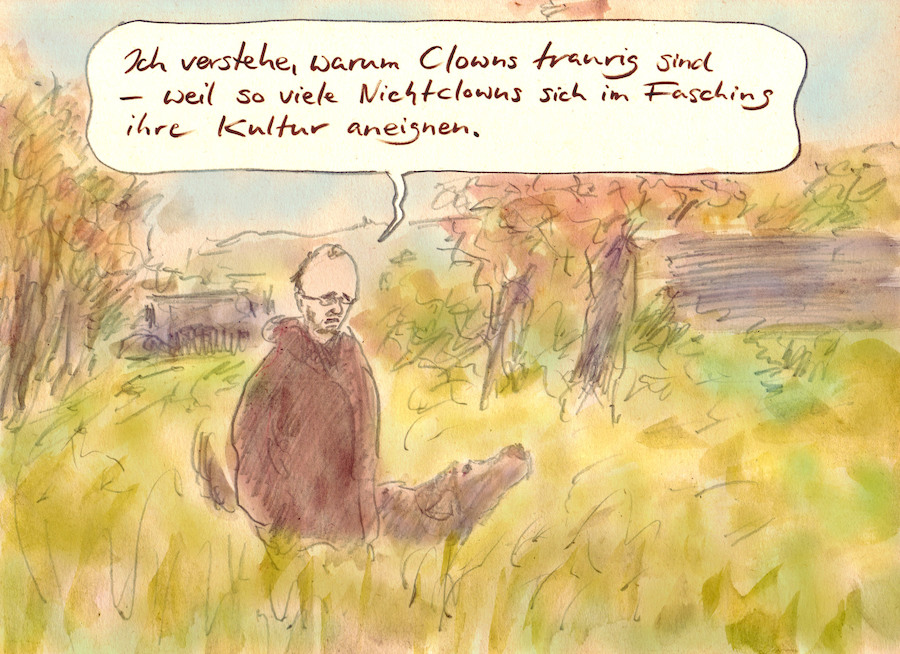 Ich verstehe, warum Clowns traurig sind
– weil so viele Nichtclowns sich im Fasching
ihre Kultur aneignen.